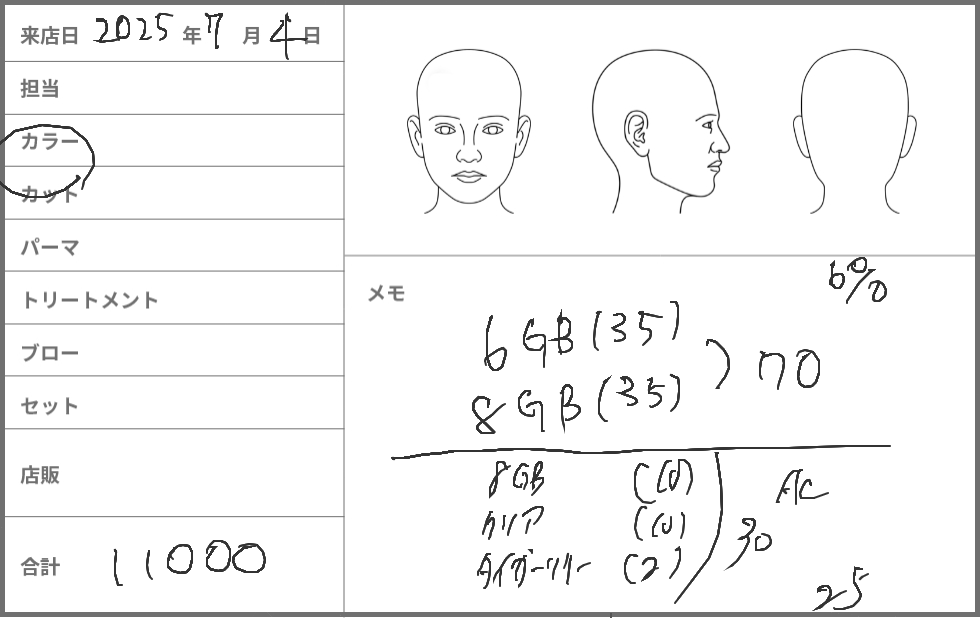 来店日 2025 年 7 月 4 日
担当
カラー
カット
パーマ
トリートメント
ブロー
セット
店販
合計 11000
メモ
6%
6GB(35)
8GB(35)
70
8GB (10)
クリア (10)
(2)
AC
30
25